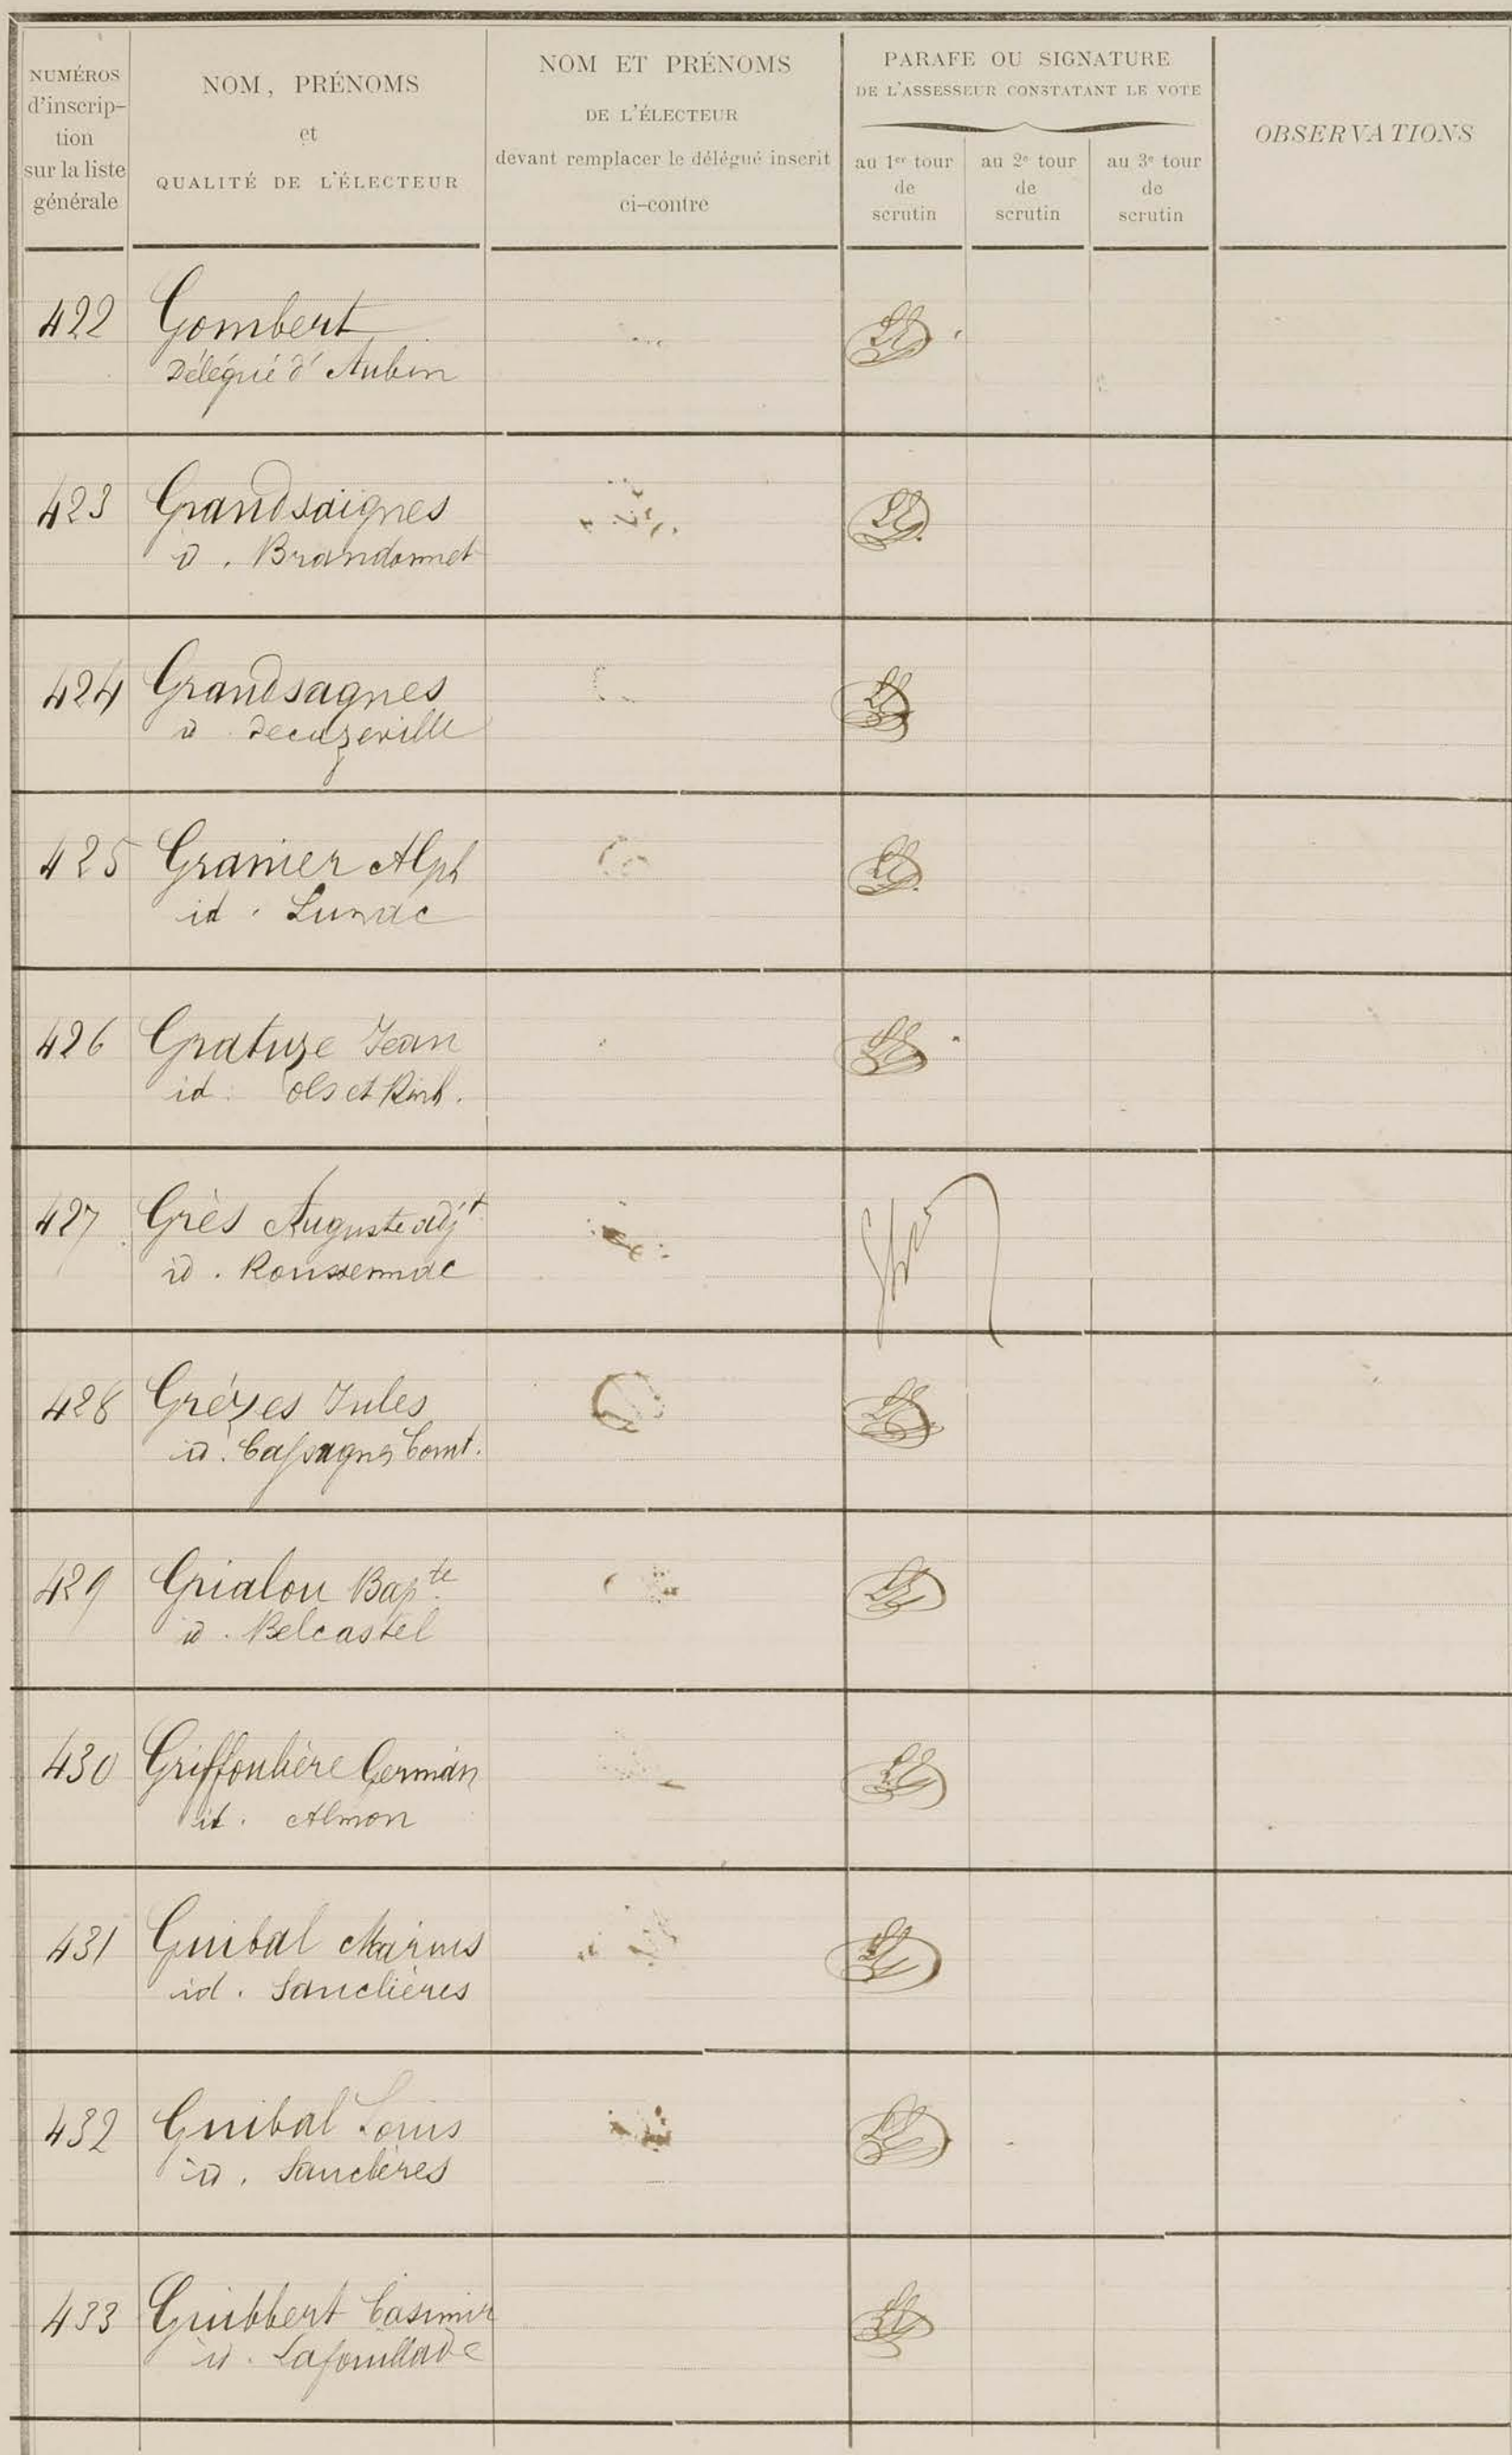 NUMÉROS
d'inscrip-
tion
sur la liste
générale
NOM, PRÉNOMS
et
QUALITÉ DE L'ÉLECTEUR
NOM ET PRÉNOMS
DE L'ÉLECTEUR
devant remplacer le délégué inscrit
ci-contre
PARAFE OU SIGNATURE
DE L'ASSESSEUR CONSTATANT LE VOTE
au 1er tour
de
scrutin
au 2e tour
de
scrutin
au 3e tour
de
scrutin
OBSERVATIONS
422 Gombert
Délégué d'Aubin
423 Grandsaignes
id. Brandonnet
424 Grandsagnes
id Decazeville
425 Granier Alph
id. Lunac
426 Gratuze Jean
id. Ols et Rinh.
427 Grès Auguste adjt
id. Roussennac
428 Grézes Jules
id. Cassagnes Comt.
429 Grialou Bapte
id. Belcastel
430 Griffoulière Germain
id. Almon
431 Guibal Marius
id. Sauclières
432 Guibal Louis
id. Sauclières
433 Guibbert Casimir
id. Lafouillade